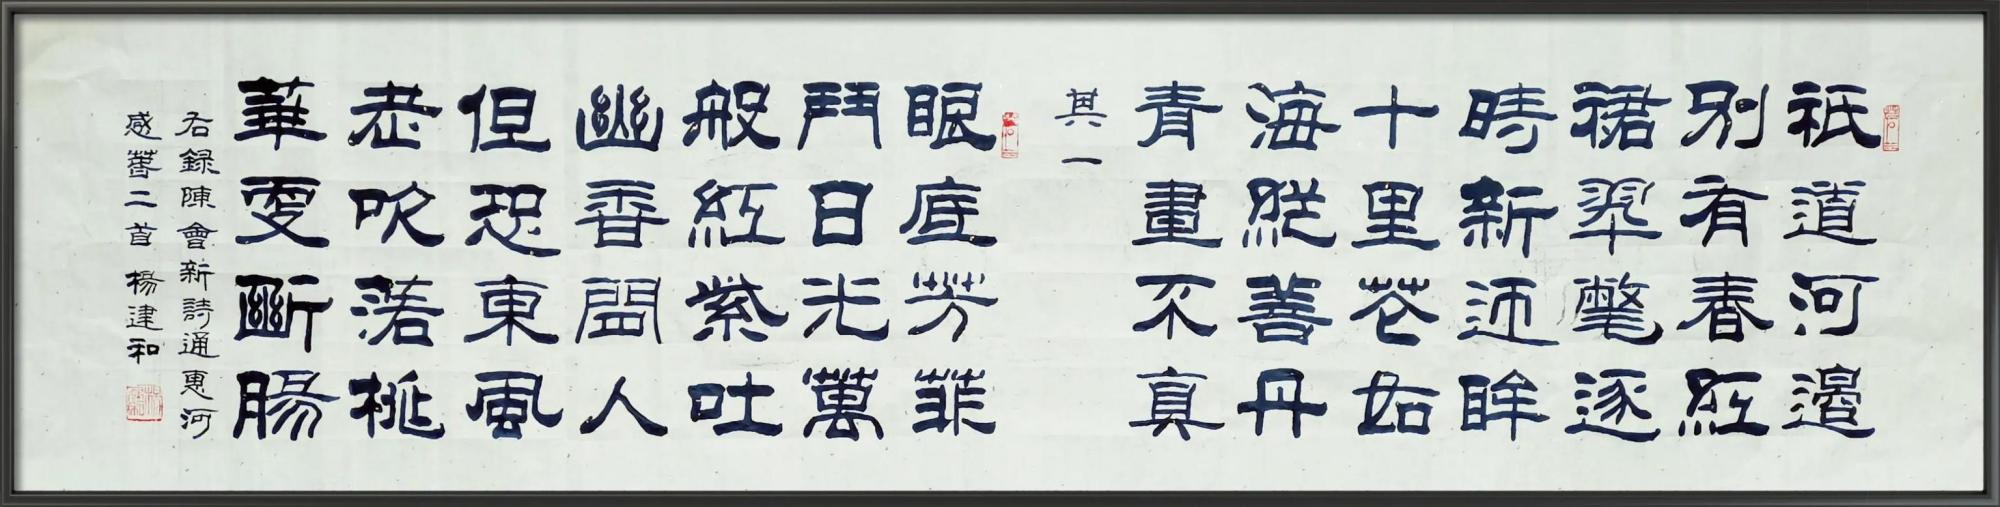 祇道河邊
別有春紅
裙翠逐
時新迎眸
十里花如
海縱善丹
青畫不真
其一
眼底芳菲
鬥日光萬
般紅紫吐
幽香閒人
但恐東風
老吹落桃
華更斷腸
右録陳會新詩通惠河
感舊二首 楊建和